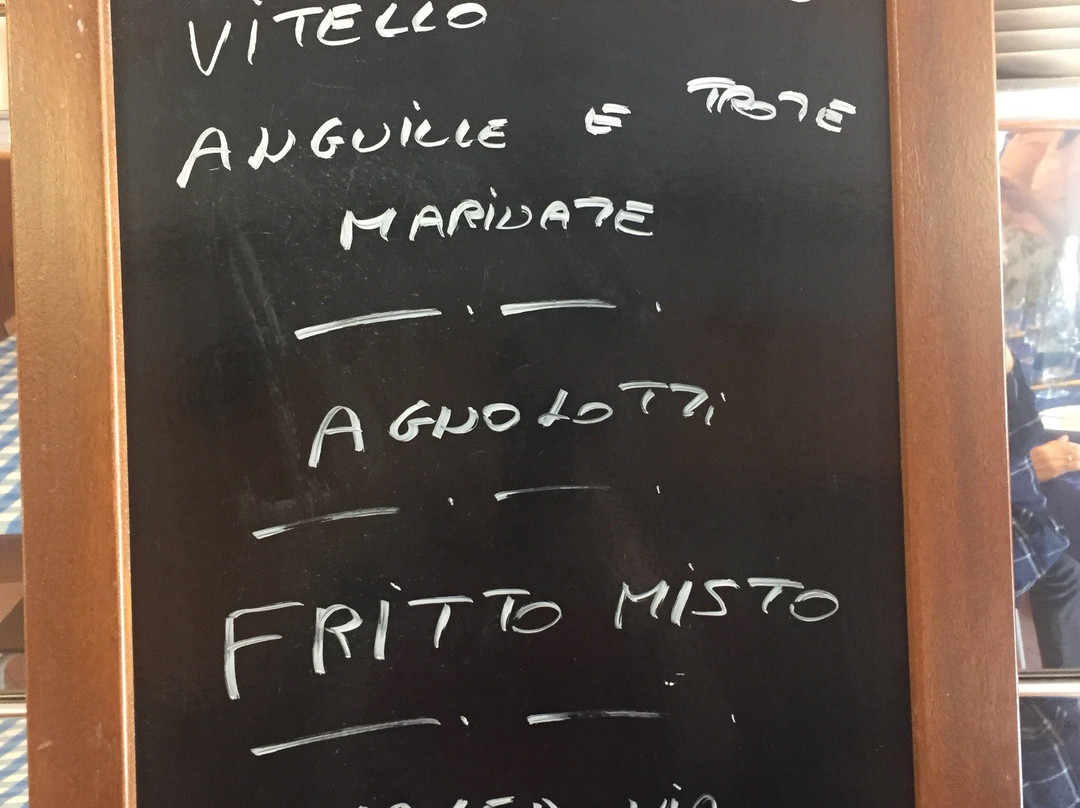 VITELLO
ANGUILLE E TROTE
MARINATE
AGNOLOTTI
FRITTO MISTO